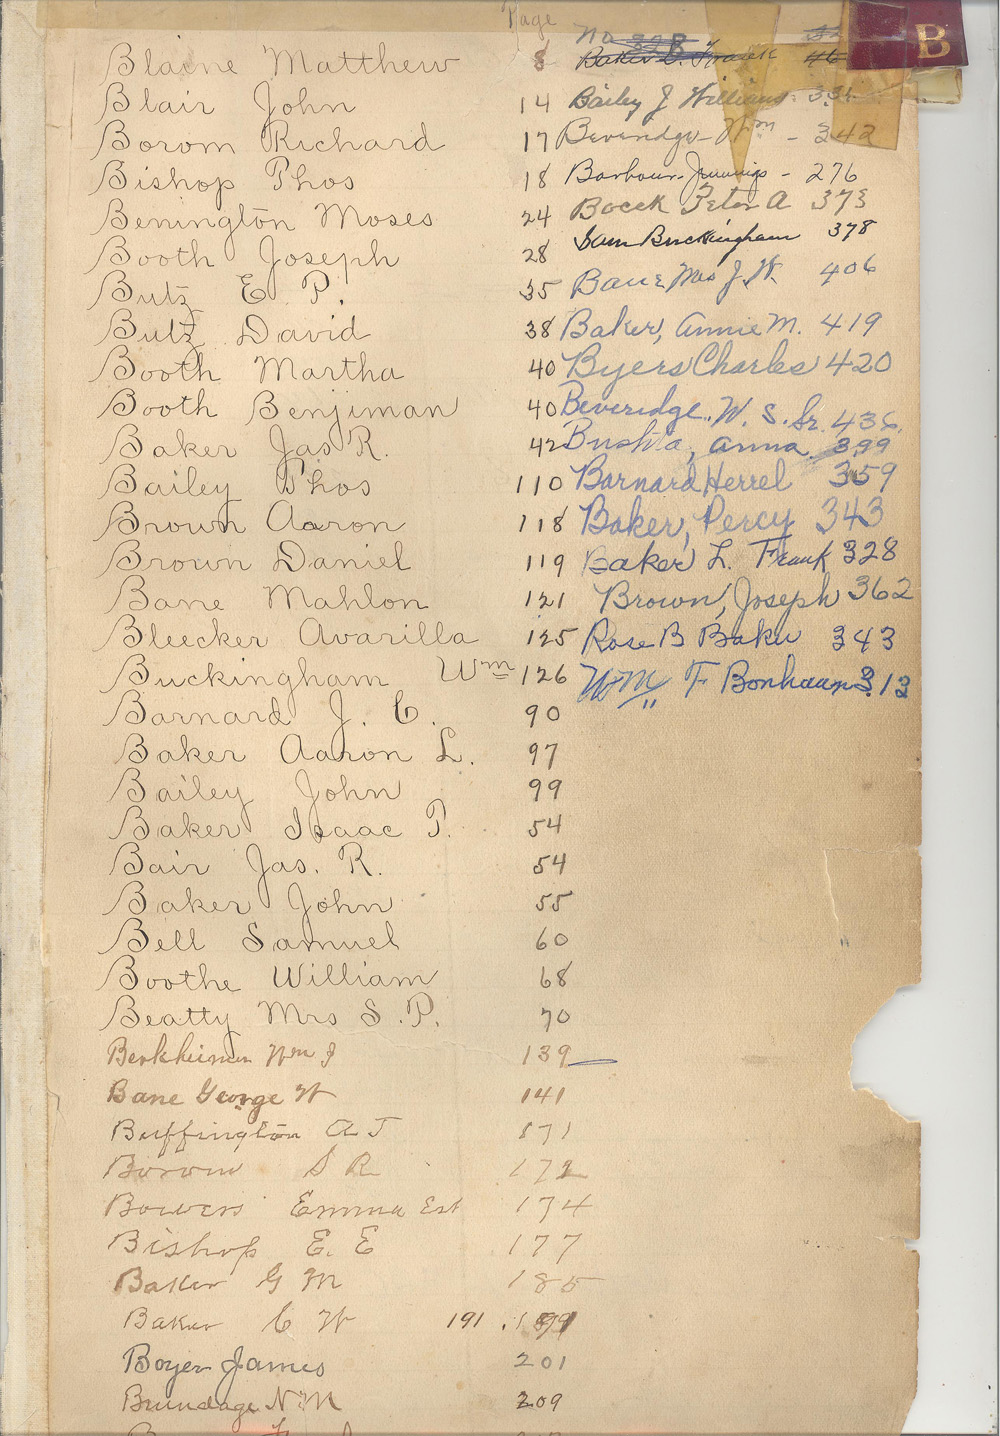 Page
B
Blaine Matthew 8
Blair John 14
Borom Richard 17
Bishop Thos 18
Benington Moses 24
Booth Joseph 28
Butz E. P. 35
Butz David 38
Booth Martha 40
Booth Benjiman 40
Baker Jas R. 42
Bailey Thos 110
Brown Aaron 118
Brown Daniel 119
Bane Mahlon 121
Bleecker Avarilla 125
Buckingham Wm 126
Barnard J. C. 90
Baker Aaron L. 97
Bailey John 99
Baker Isaac P. 54
Bair Jas. R. 54
Baker John 55
Bell Samuel 60
Boothe William 68
Beatty Mrs S. P. 70
Berkheimer Wm J 139
Bane George W 141
Buffington A J 171
Borom S R 172
Bowers Emma Est 174
Bishop E. E 177
Baker G M 185
Baker C W 191
Boyer James 201
Brundage N. M 209
No 328
Baker L. Frank 46
Bailey J Williams 334
Beveridge Wm - 342
Barbour Jennings - 276
Bocek Peter A 373
Sam Buckingham 378
Bane Mrs J. W. 406
Baker, Annie M. 419
Byers Charles 420
Beveridge. W. S. Sr. 436.
Bushta, Anna 399
Barnard Herrel 359
Baker, Percy 343
Baker L. Frank 328
Brown, Joseph 362
Rose B Baker 343
Wm F Bonhaup 313